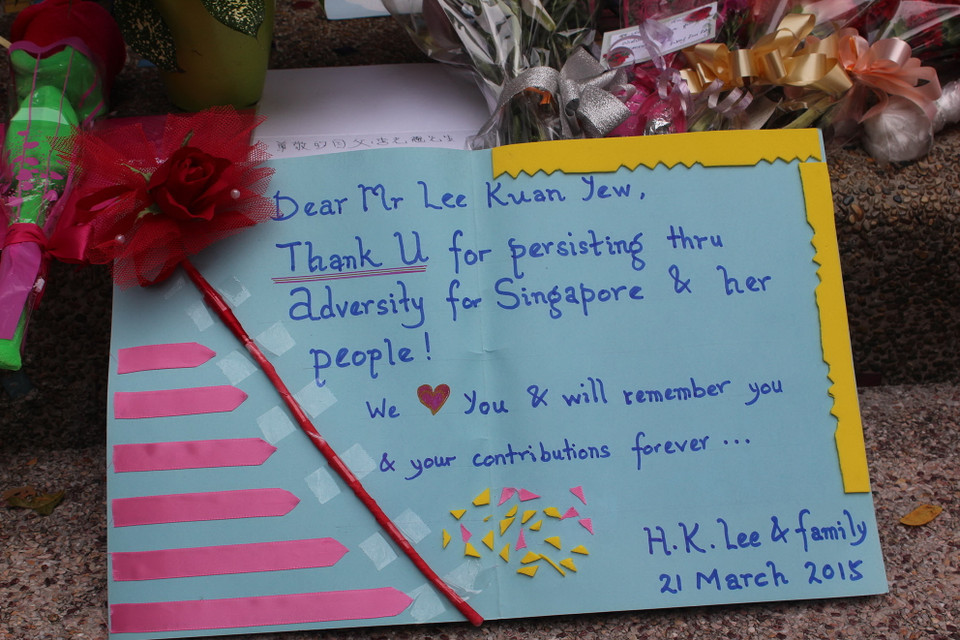 Dear Mr Lee Kuan Yew,
Thank U for persisting thru
adversity for Singapore & her
people!
We ❤ you & will remember you
& your contributions forever ...
H.K. Lee & family
21 March 2015